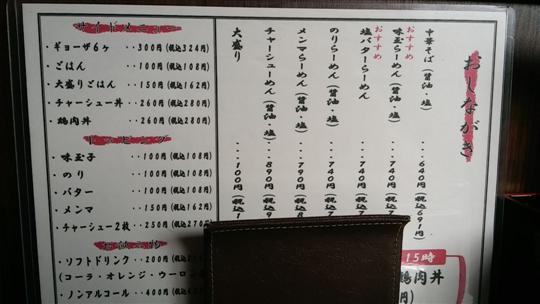 おしながき
中華そば(醤油・塩)・・・640円(税込691円
おすすめ
味玉らーめん(醤油・塩)・・・740円(税込7
おすすめ
塩バターらーめん・・・740円(税込7
のりらーめん(醤油・塩)・・・740円(税込7
メンマらーめん(醤油・塩)・・・790円(税込
チャーシューめん(醤油・塩)・・・890円(税込9
大盛り・・・100円(税込1
サイドメニュー
・ギョーザ6ヶ ・・300円(税込324円)
・ごはん ・・100円(税込108円)
・大盛りごはん ・・150円(税込162円)
・チャーシュー丼 ・・260円(税込280円)
・鶏肉丼 ・・260円(税込280円)
トッピング
・味玉子 ・・100円(税込108円)
・のり ・・100円(税込108円)
・バター ・・100円(税込108円)
・メンマ ・・150円(税込162円)
・チャーシュー2枚 ・・250円(税込270円)
・ソフトドリンク ・・200円(税込
(コーラ・オレンジ・ウーロン
・ノンアルコール ・・400円(税込
15時
鶏肉丼
円)